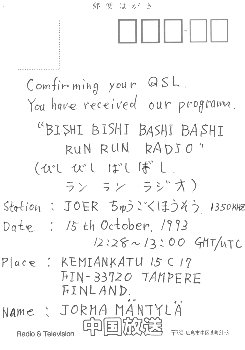 郵便はがき
Comfirming your QSL.
You have received our programm.
"BISHI BISHI BASHI BASHI
RUN RUN RADIO"
(びしびしばしばし
ラン ラン ラジオ)
Station : JOER ちゅうごくほうそう 1350KHz
Date : 15th October, 1993
12:28~13:00 GMT/UTC
Place : KEMIANKATU 15 C 17
FIN-33720 TAMPERE
FINLAND.
Name : JORMA MÄNTYLÄ
Radio & Television 中国放送